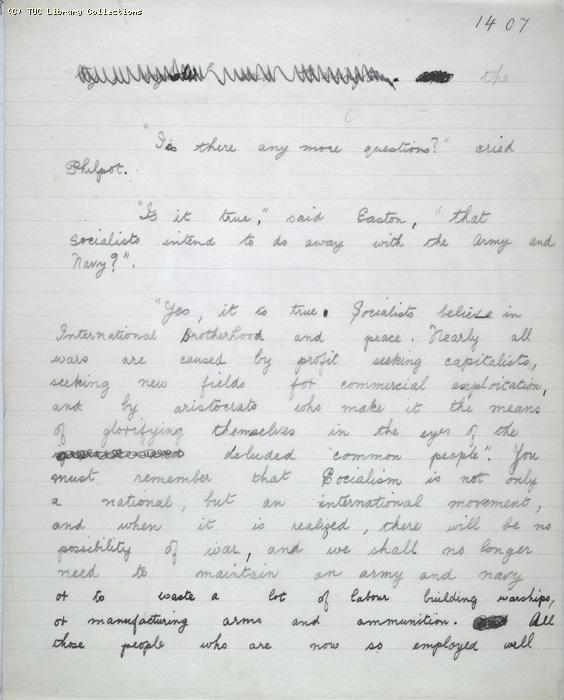 (C) TUC Library Collections
1407
the
"Is there any more questions?" cried
Philpot.
"Is it true," said Easton, "that
Socialists intend to do away with the Army and
Navy?".
"Yes, it is true. Socialists believe in
International Brotherhood and peace. Nearly all
wars are caused by profit seeking capitalists,
seeking new fields for commercial exploitation,
and by aristocrats who make it the means
of glorifying themselves in the eyes of the
deluded "common people". You
must remember that Socialism is not only
a national, but an international movement,
and when it is realized, there will be no
possibility of war, and we shall no longer
need to maintain an army and navy
or to waste a lot of labour building warships,
or manufacturing arms and ammunition. All
those people who are now so employed will